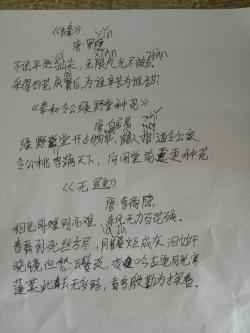 《蜂》
唐 罗隐 yǐn
不论平地与山尖，无限风光尽被占
jiān zhàn
采得百花成蜜后，为谁辛苦为谁甜？
《奉和令公绿野堂种花》
唐 白居易
绿野堂开占物华，路人指道令公家
令公桃李满天下，何用堂前更种花
《无题》
唐 李商隐
相见时难别亦难，东风无力百花残。
春蚕到死丝方尽，蜡炬成灰泪始干
晓镜但愁云鬓改，夜吟应觉月光寒
蓬莱此去无多路，青鸟殷勤为探看。